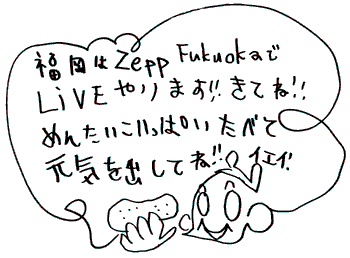 福岡はZepp Fukuokaで
LiVEやります!!きてね!!
めんたいこいっぱいたべて
元気を出してね!!イエイ!